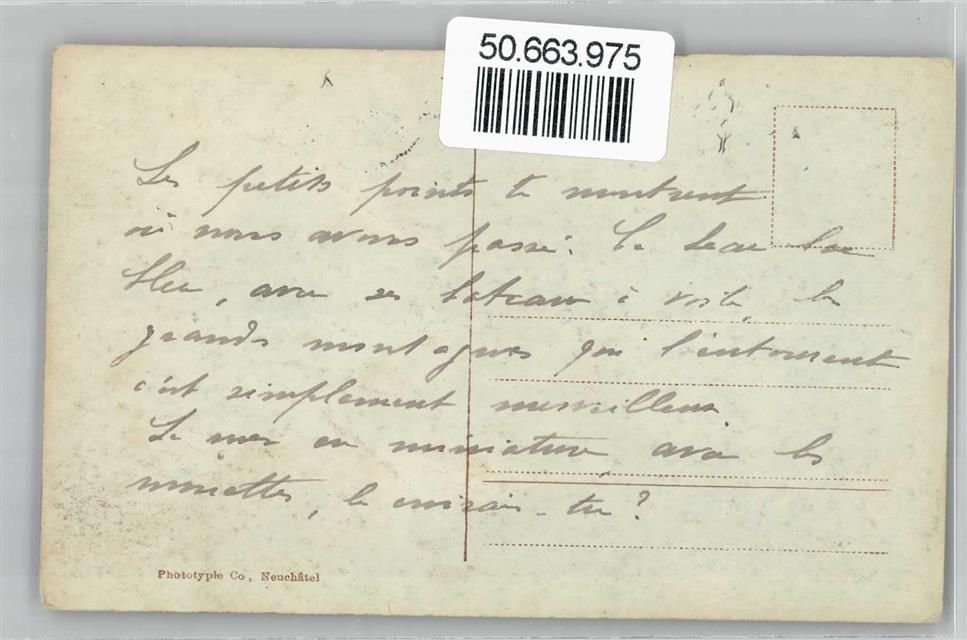 50.663.975
Les petits points te montrent
où nous avons passé. Le beau lac
bleu, avec ses bateaux à voile, les
grandes montagnes qui l'entourent
c'est simplement merveilleux
La mer en miniature avec les
mouettes, le croirais-tu?
Phototypie Co, Neuchâtel